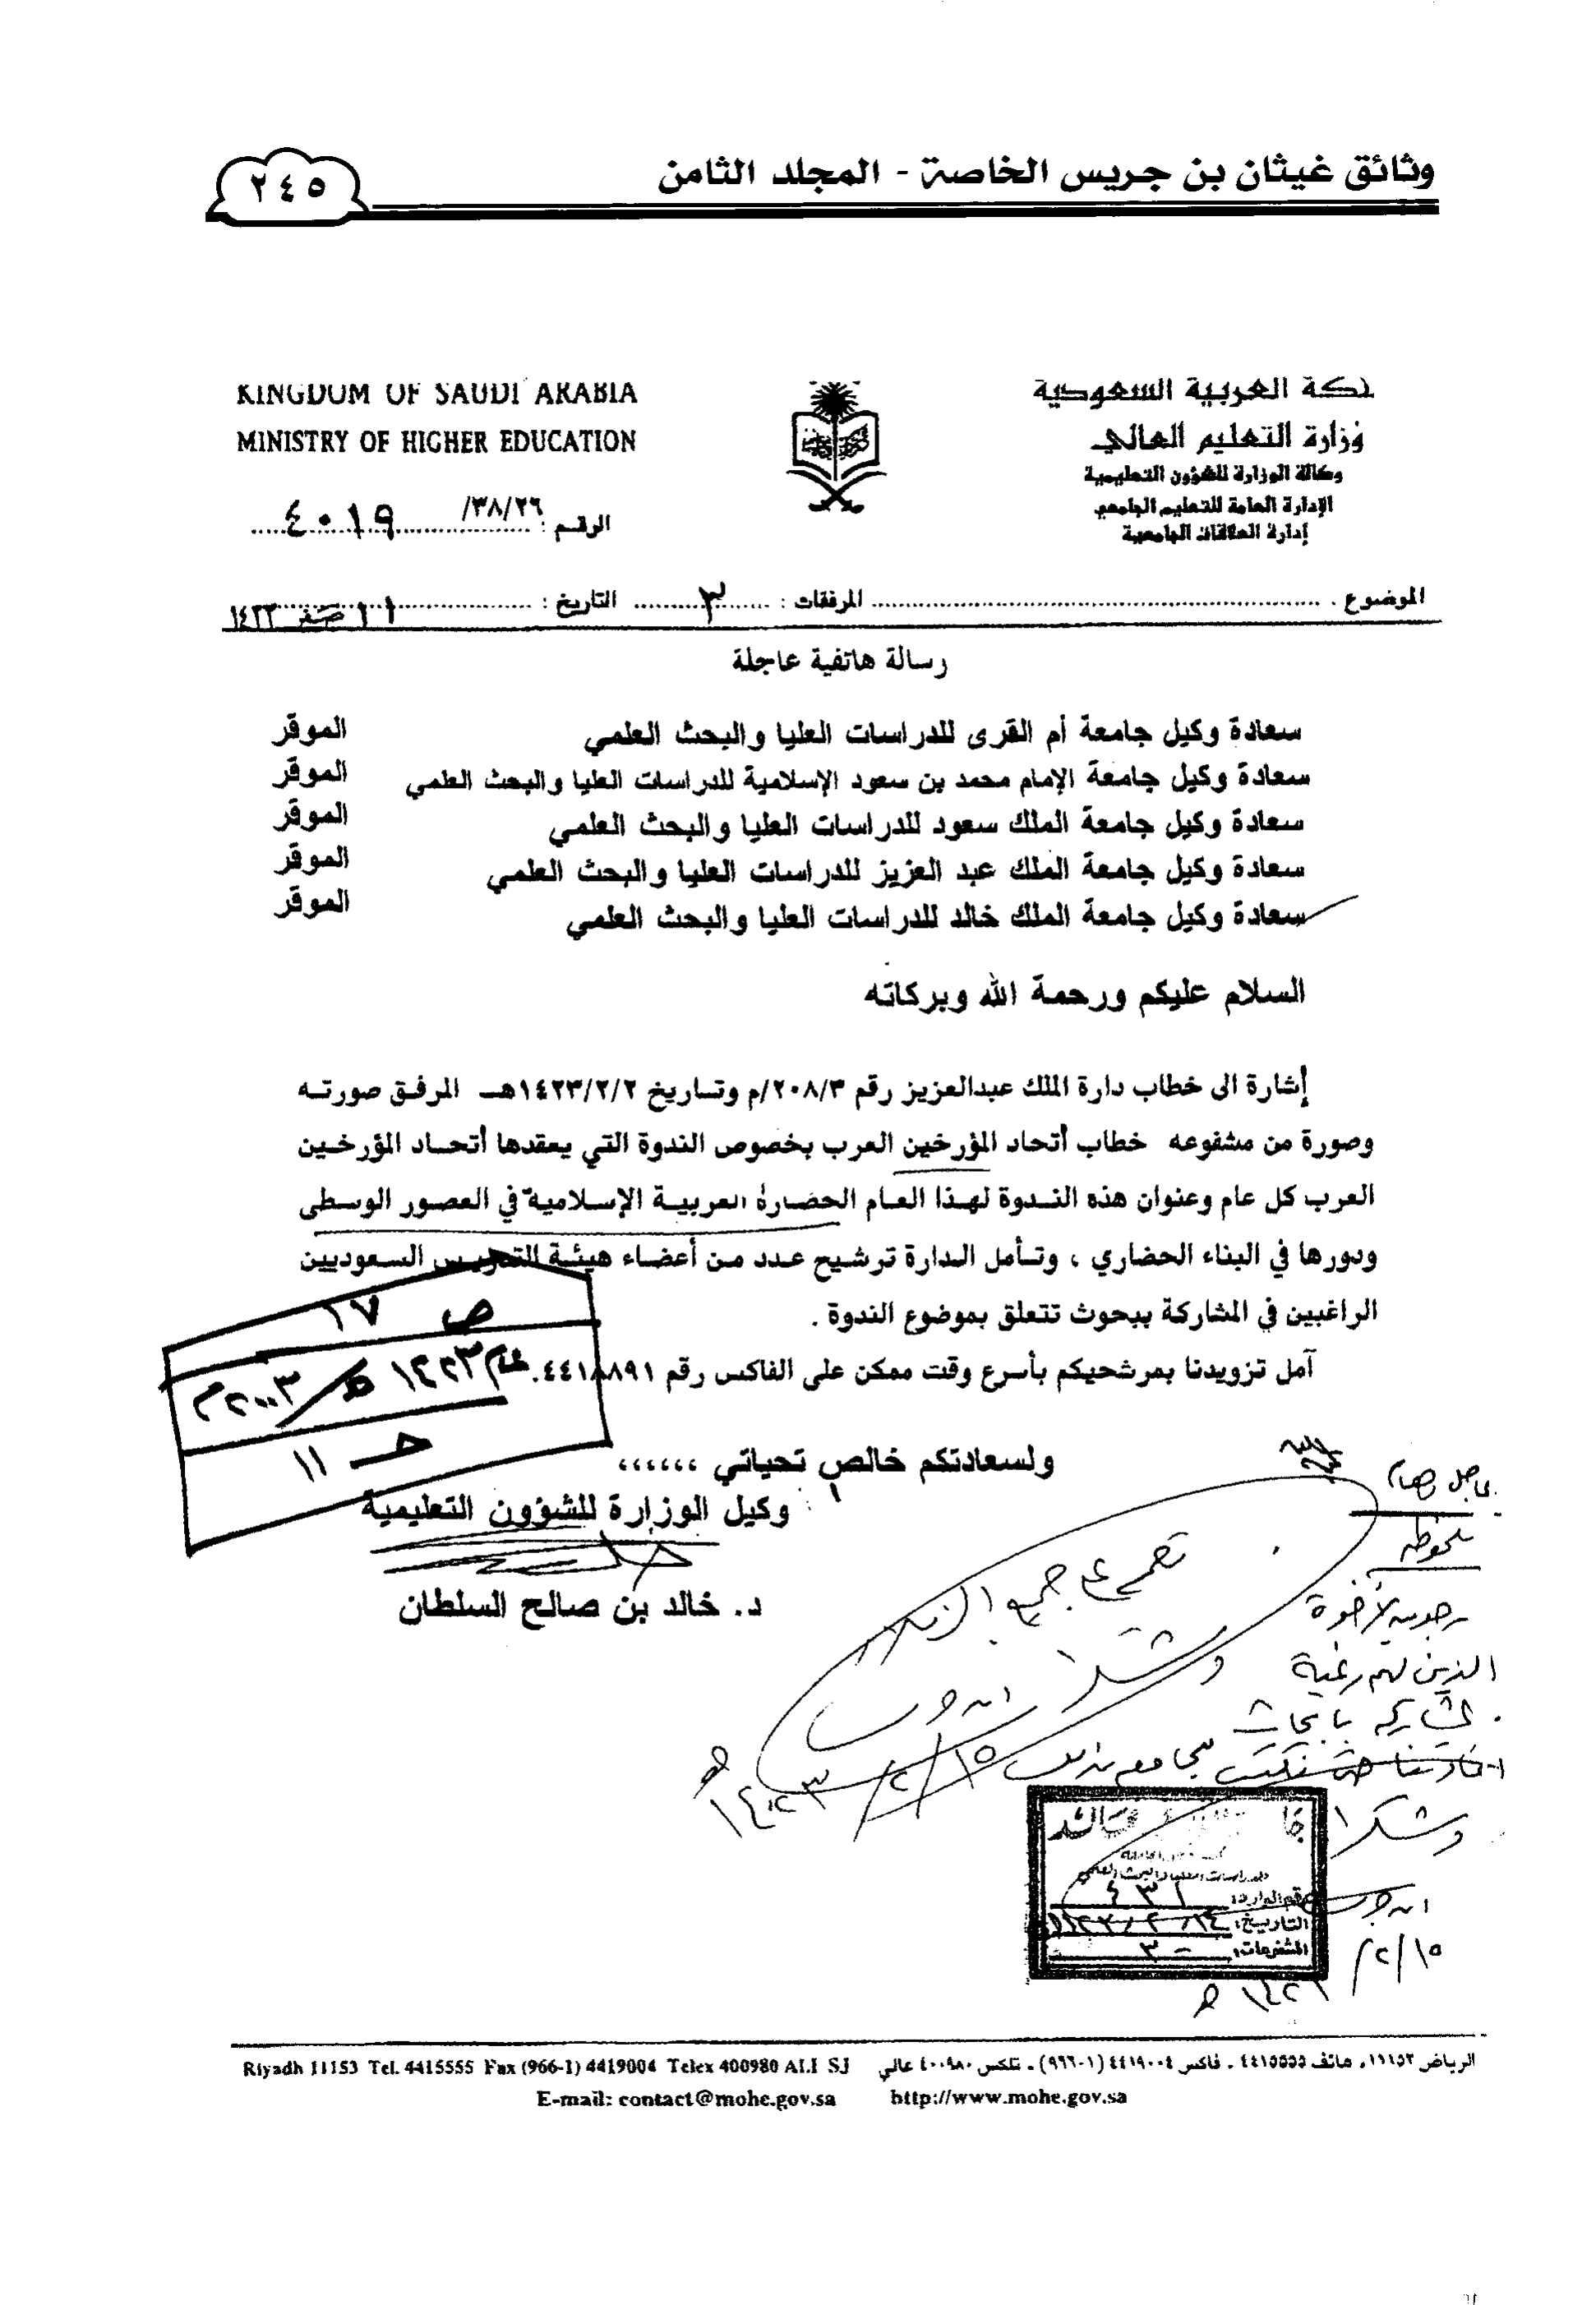 وثائق غيثان بن جريس الخاصة - المجلد الثامن
٢٤٥
KINGDOM OF SAUDI ARABIA
MINISTRY OF HIGHER EDUCATION
الرقم : ٣٨/٢٦/ ٤٠١٩
لكة العربية السعودية
وزارة التعليم العالي
وكالة الوزارة للشؤون التعليمية
الإدارة العامة للتعليم الجامعي
إدارة العلاقات الجامعية
الموضوع . المرفقات : ٣ التاريخ : ١١ صفر ١٤٢٣
رسالة هاتفية عاجلة
سعادة وكيل جامعة أم القرى للدراسات العليا والبحث العلمي الموقر
سعادة وكيل جامعة الإمام محمد بن سعود الإسلامية للدراسات العليا والبحث العلمي الموقر
سعادة وكيل جامعة الملك سعود للدراسات العليا والبحث العلمي الموقر
سعادة وكيل جامعة الملك عبد العزيز للدراسات العليا والبحث العلمي الموقر
سعادة وكيل جامعة الملك خالد للدراسات العليا والبحث العلمي الموقر
السلام عليكم ورحمة الله وبركاته
إشارة الى خطاب دارة الملك عبدالعزيز رقم ٢٠٨/٣/م وتاريخ ١٤٢٣/٢/٢هـ المرفق صورته
وصورة من مشفوعه خطاب أتحاد المؤرخين العرب بخصوص الندوة التي يعقدها أتحاد المؤرخين
العرب كل عام وعنوان هذه الندوة لهذا العام الحضارة العربية الإسلامية في العصور الوسطى
ودورها في البناء الحضاري ، وتأمل الدارة ترشيح عدد من أعضاء هيئة التدريس السعوديين
الراغبين في المشاركة ببحوث تتعلق بموضوع الندوة .
آمل تزويدنا بمرشحيكم بأسرع وقت ممكن على الفاكس رقم ٤٤١٨٨٩١.
ص ١٧
عام ١٤٢٣ هـ/٢٠٠٣م
حـ ١١
ولسعادتكم خالص تحياتي ،،،،،،
وكيل الوزارة للشؤون التعليمية
د. خالد بن صالح السلطان
عاجل وهام
ملحوظة
نرجو من الأخوة
الذين لهم رغبة
المشاركة بأبحاث
وشكرا
ابن جريس
١٥/٢/
تعمم على جميع الزملاء
وشكرا ابن جريس
١٥/٢/١٤٢٣هـ
خالد
للدراسات العليا والبحث العلمي
رقم الوارد: ٤٣١
التاريخ: ١٤/٢/
المشفوعات: -٣-
Riyadh 11153 Tel. 4415555 Fax (966-1) 4419004 Telex 400980 ALI SJ
الرياض ١١١٥٣، هاتف ٤٤١٥٥٥٥ ـ فاكس ٤٤١٩٠٠٤ (١-٩٦٦) ـ تلكس ٤٠٠٩٨٠ عالي
E-mail: contact@mohe.gov.sa http://www.mohe.gov.sa